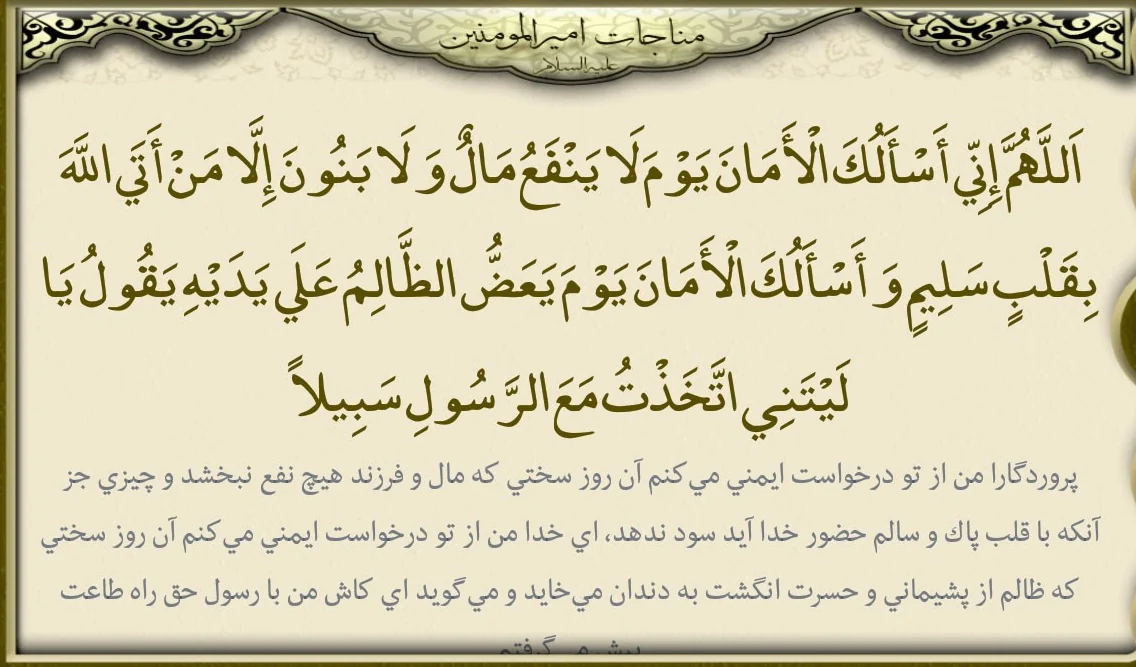 مناجات امیرالمومنین
علیه‌السلام
اَللَّهُمَّ إِنِّي أَسْأَلُكَ الْأَمَانَ يَوْمَ لَا يَنْفَعُ مَالٌ وَ لَا بَنُونَ إِلَّا مَنْ أَتَي اللَّهَ
بِقَلْبٍ سَلِيمٍ وَ أَسْأَلُكَ الْأَمَانَ يَوْمَ يَعَضُّ الظَّالِمُ عَلَي يَدَيْهِ يَقُولُ يَا
لَيْتَنِي اتَّخَذْتُ مَعَ الرَّسُولِ سَبِيلاً
پروردگارا من از تو درخواست ايمني مي‌كنم آن روز سختي كه مال و فرزند هيچ نفع نبخشد و چيزي جز
آنكه با قلب پاك و سالم حضور خدا آيد سود ندهد، اي خدا من از تو درخواست ايمني مي‌كنم آن روز سختي
كه ظالم از پشيماني و حسرت انگشت به دندان مي‌خايد و مي‌گويد اي كاش من با رسول حق راه طاعت